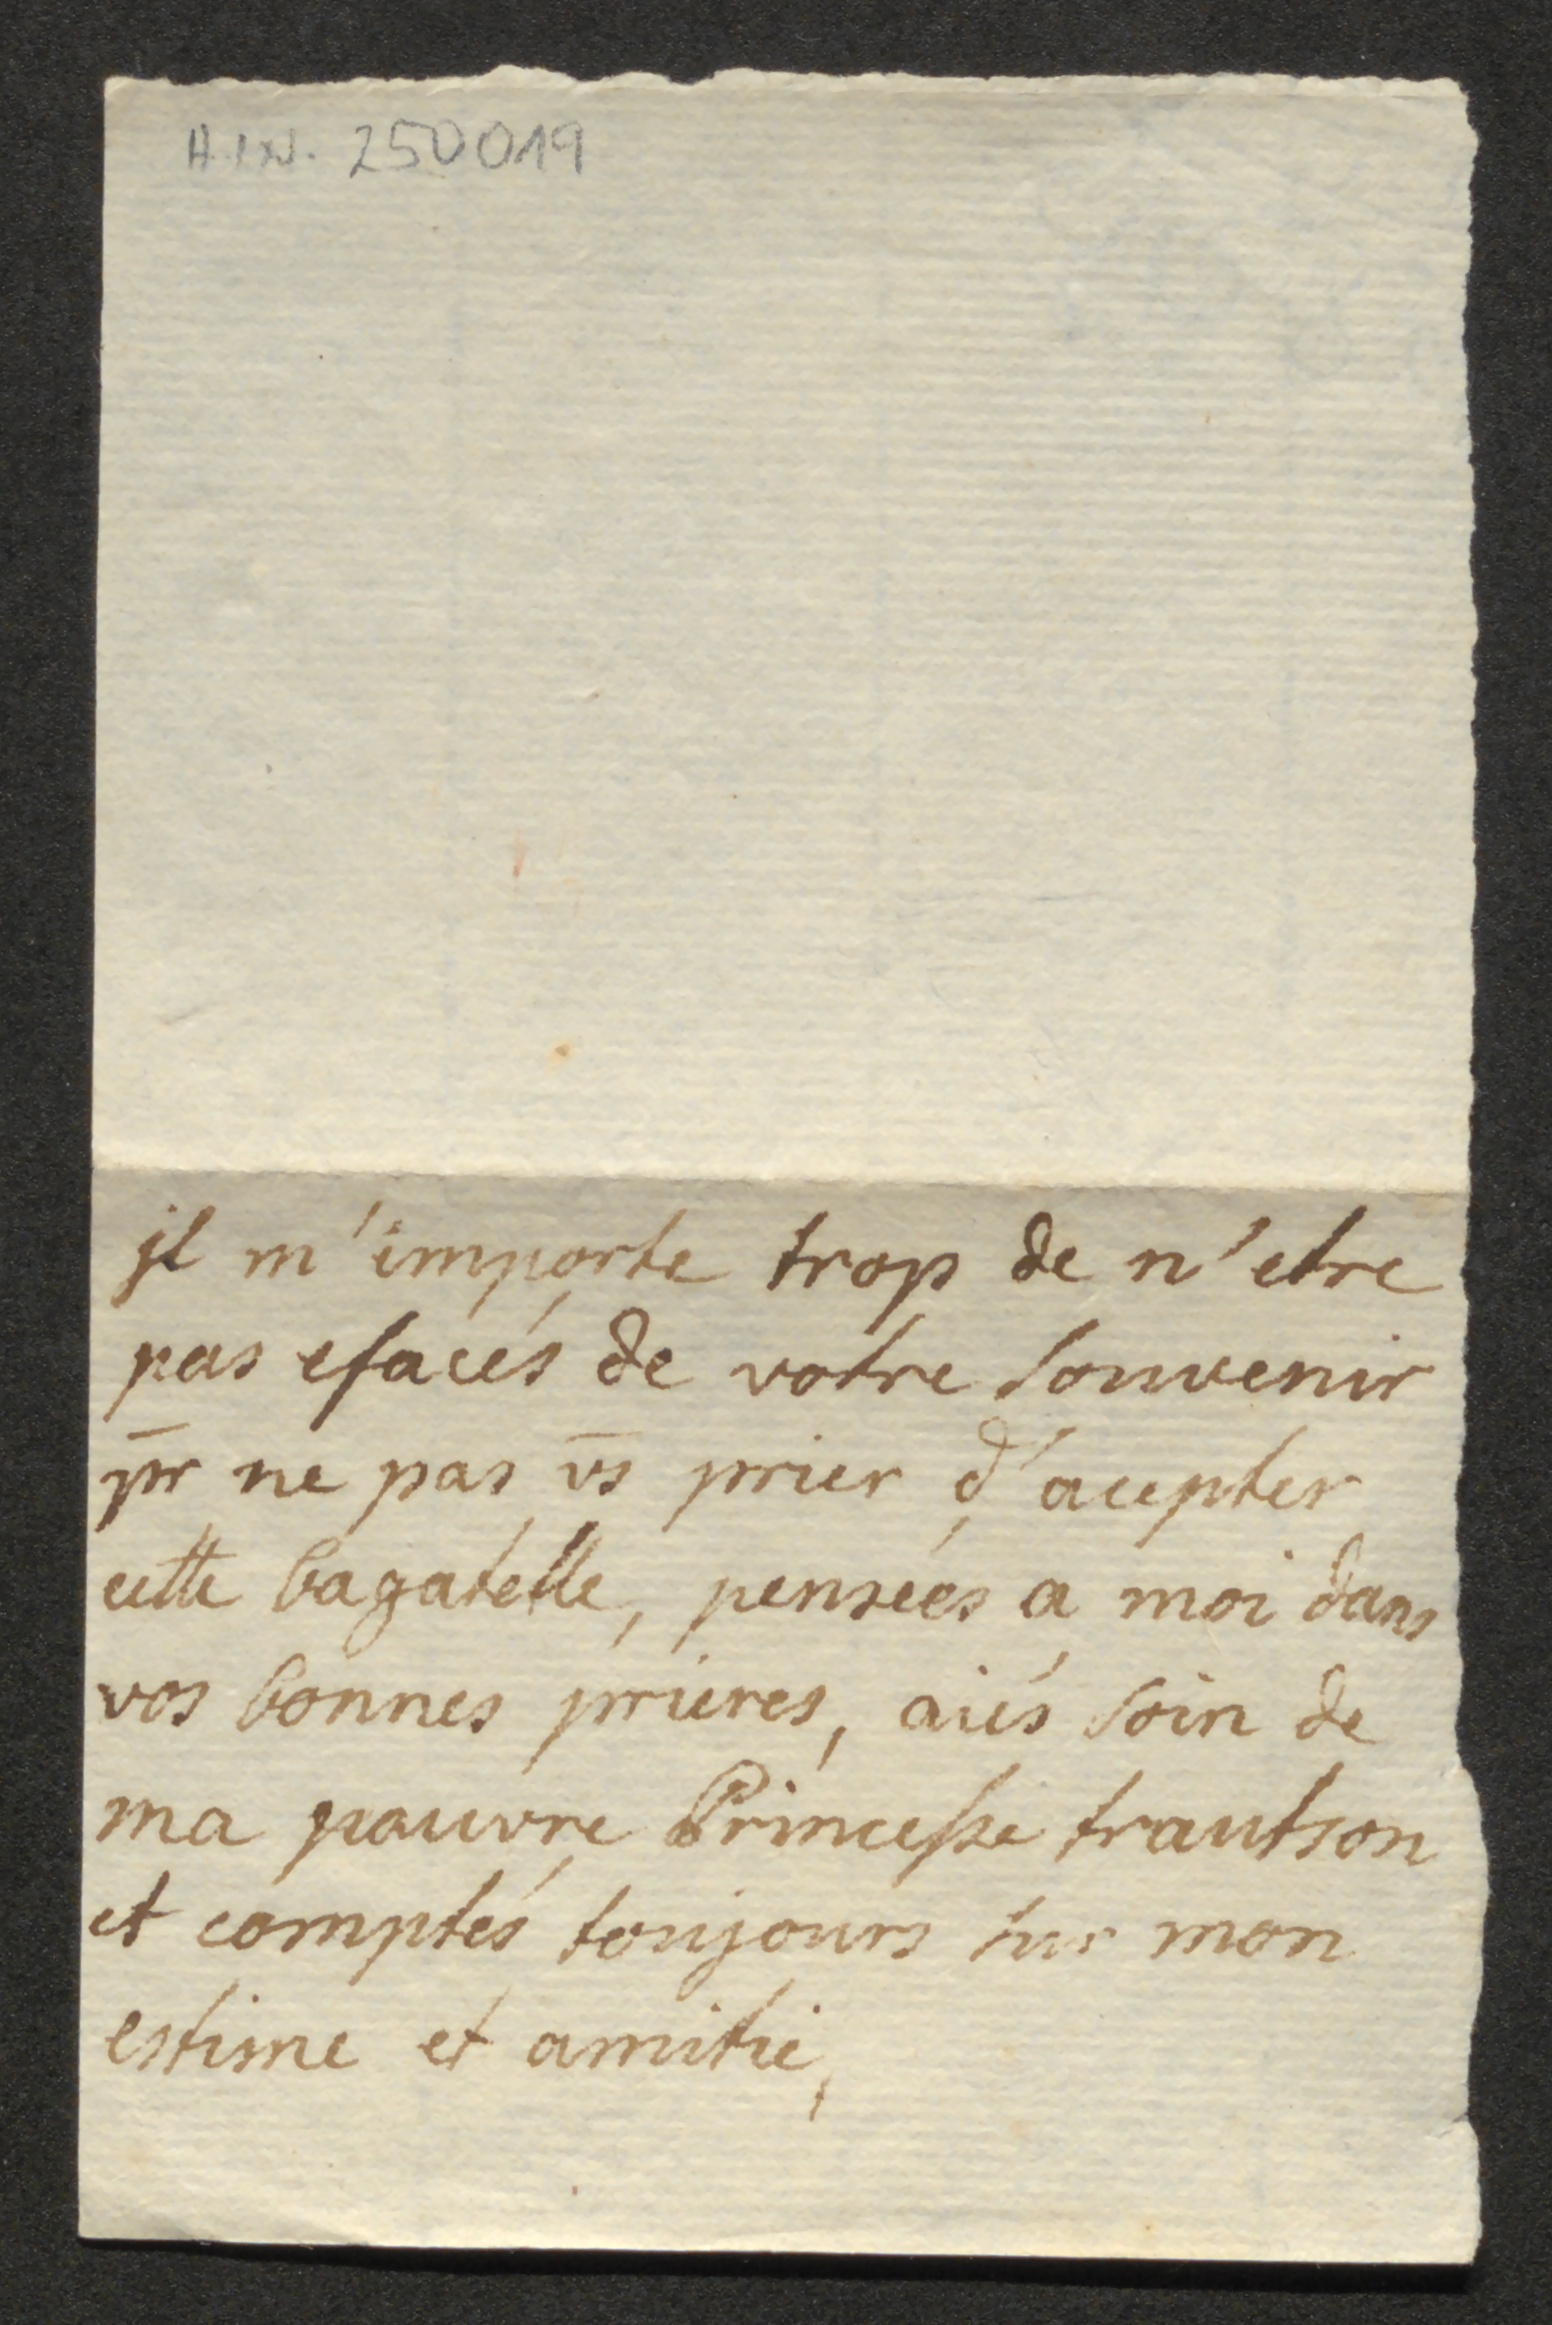 H.I.N. 250019
jl m'importe trop de n'etre
pas efacés de votre souvenir
pr ne pas vs prier d'acepter
cette bagatelle, pensées a moi dans
vos bonnes prieres, aiés soin de
ma pauvre Princesse trautson
et comptés toujours sur mon
estime et amitie,